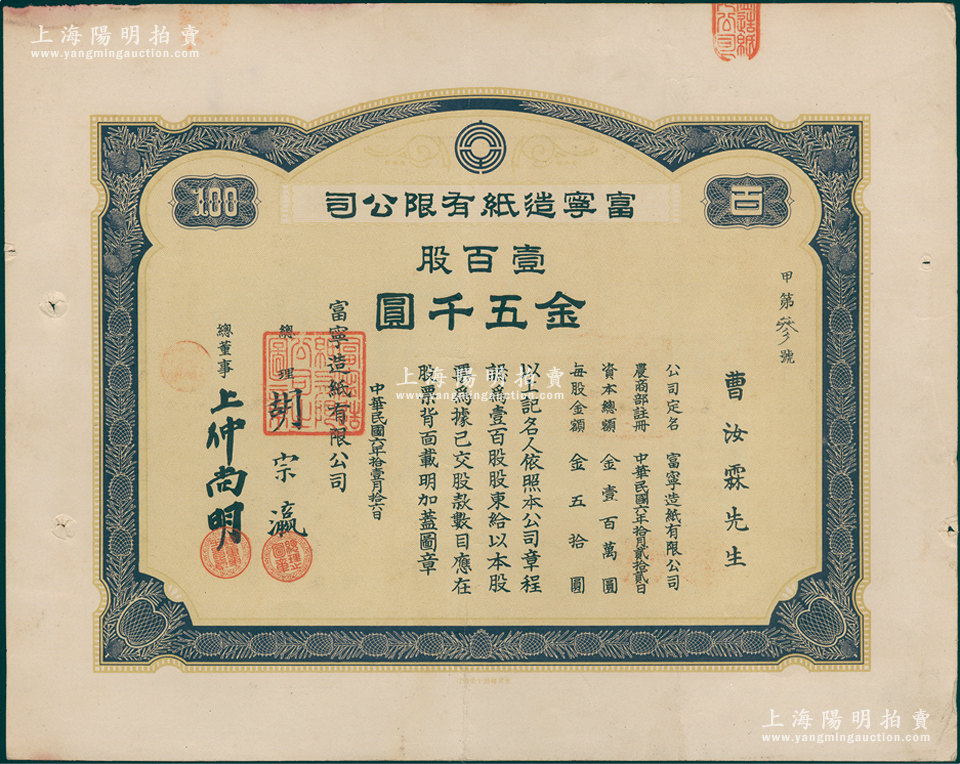 上海陽明拍賣
www.yangmingauction.com
百
100
富寧造紙有限公司
壹百股
金五千圓
甲第叁號
曹汝霖先生
公司定名 富寧造紙有限公司
農商部註冊 中華民國六年拾月貳拾貳日
資本總額 金壹百萬圓
每股金額 金五拾圓
以上記名人依照本公司章程
認為壹百股股東給以本股
票為據已交股款數目應在
股票背面載明加蓋圖章
中華民國六年拾壹月拾六日
富寧造紙有限公司
總理 胡宗瀛
總董事 上仲尚明
上海陽明拍賣
www.yangmingauction.com
上海陽明拍賣
www.yangmingauction.com